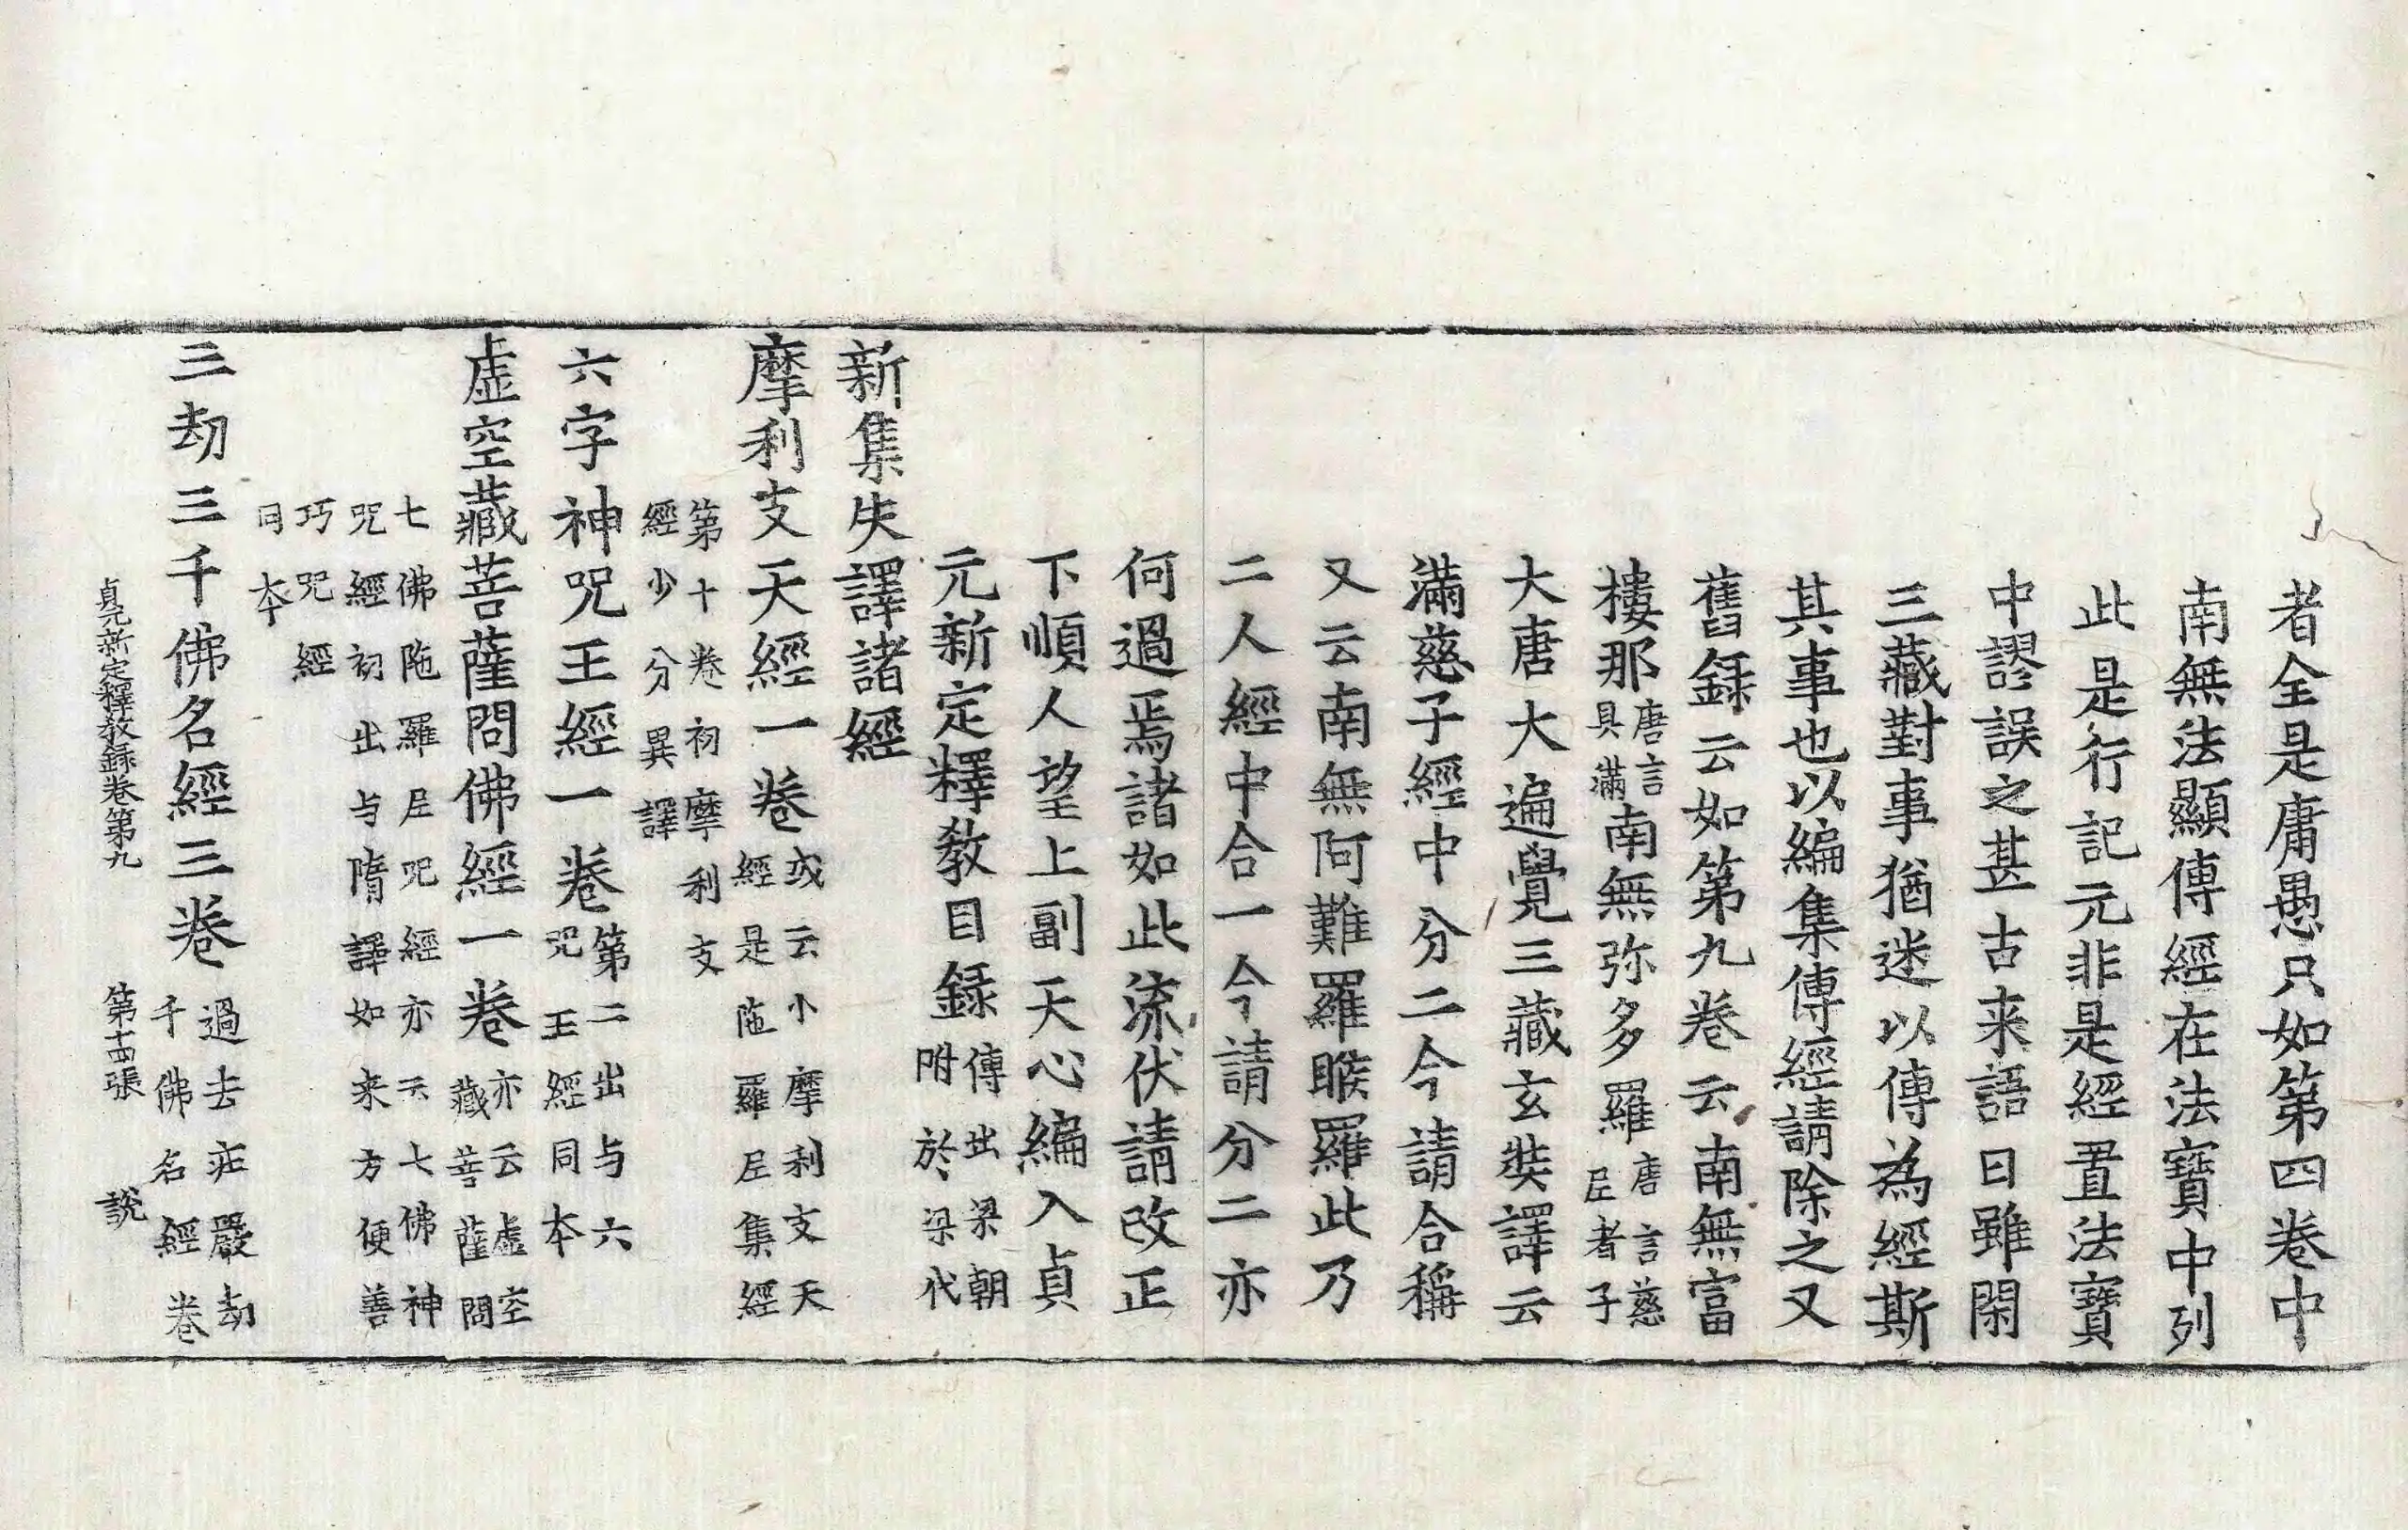 者全是庸愚只如第四卷中
南無法顯傳經在法寶中列
此是行記元非是經置法寶
中謬誤之甚古来語曰雖閑
三藏對事猶迷以傳為經斯
其事也以編集傳經請除之又
舊録云如第九卷云南無富
樓那唐言具滿南無弥多羅唐言慈㞐者子
大唐大遍覺三藏玄奘譯云
滿慈子經中分二今請合稱
又云南無阿難羅睺羅此乃
二人經中合一今請分二亦
何過焉諸如此流伏請改正
下順人望上副天心編入貞
元新定釋教目録傳出梁朝附於梁代
新集失譯諸經
摩利支天經一卷或云小摩利支天經是陁羅㞐集經
第十卷初摩利支經少分異譯
六字神咒王經一卷第二出与六咒王經同本
虛空藏菩薩問佛經一卷亦云虛空藏菩薩問
七佛陁羅㞐咒經亦云七佛神咒經初出与隋譯如来方便善
巧咒經同本
三劫三千佛名經三卷過去莊嚴劫千佛名經卷
貞元新定釋教録卷第九 第十四張 說